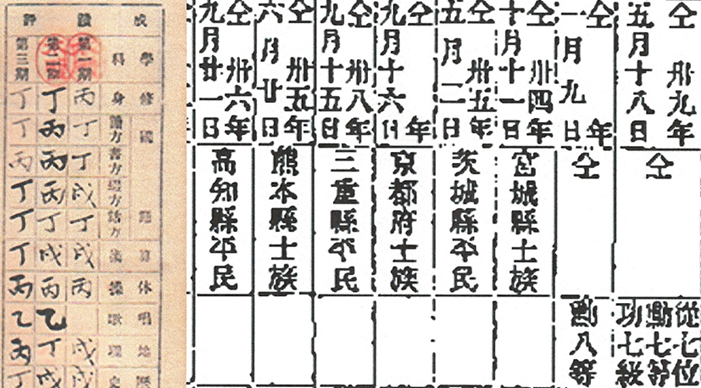 成績評
學科
修身
國
讀方
書方
綴方
話方
算
体操
唱歌
地理
第一期
丙
丁
丁
戊
丁
戊
丙
戊
戊
第二期
丁
丙
丙
丙
丁
戊
丙
乙
丁
戊
第三期
丁
丙
丙
丁
丁
丁
丙
乙
丙
丁
仝卅九年
五月十八日
仝
從七位
勳七等
功七級
仝年
一月九日
仝
勳八等
仝卅四年
十月十一日
宮城縣士族
仝卅五年
五月二日
茨城縣平民
仝年
九月十六日
京都府士族
仝卅八年
九月十五日
三重縣平民
仝卅五年
六月廿日
熊本縣士族
仝卅六年
九月廿一日
高知縣平民